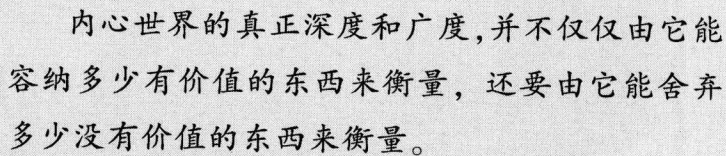 内心世界的真正深度和广度,并不仅仅由它能
容纳多少有价值的东西来衡量，还要由它能舍弃
多少没有价值的东西来衡量。